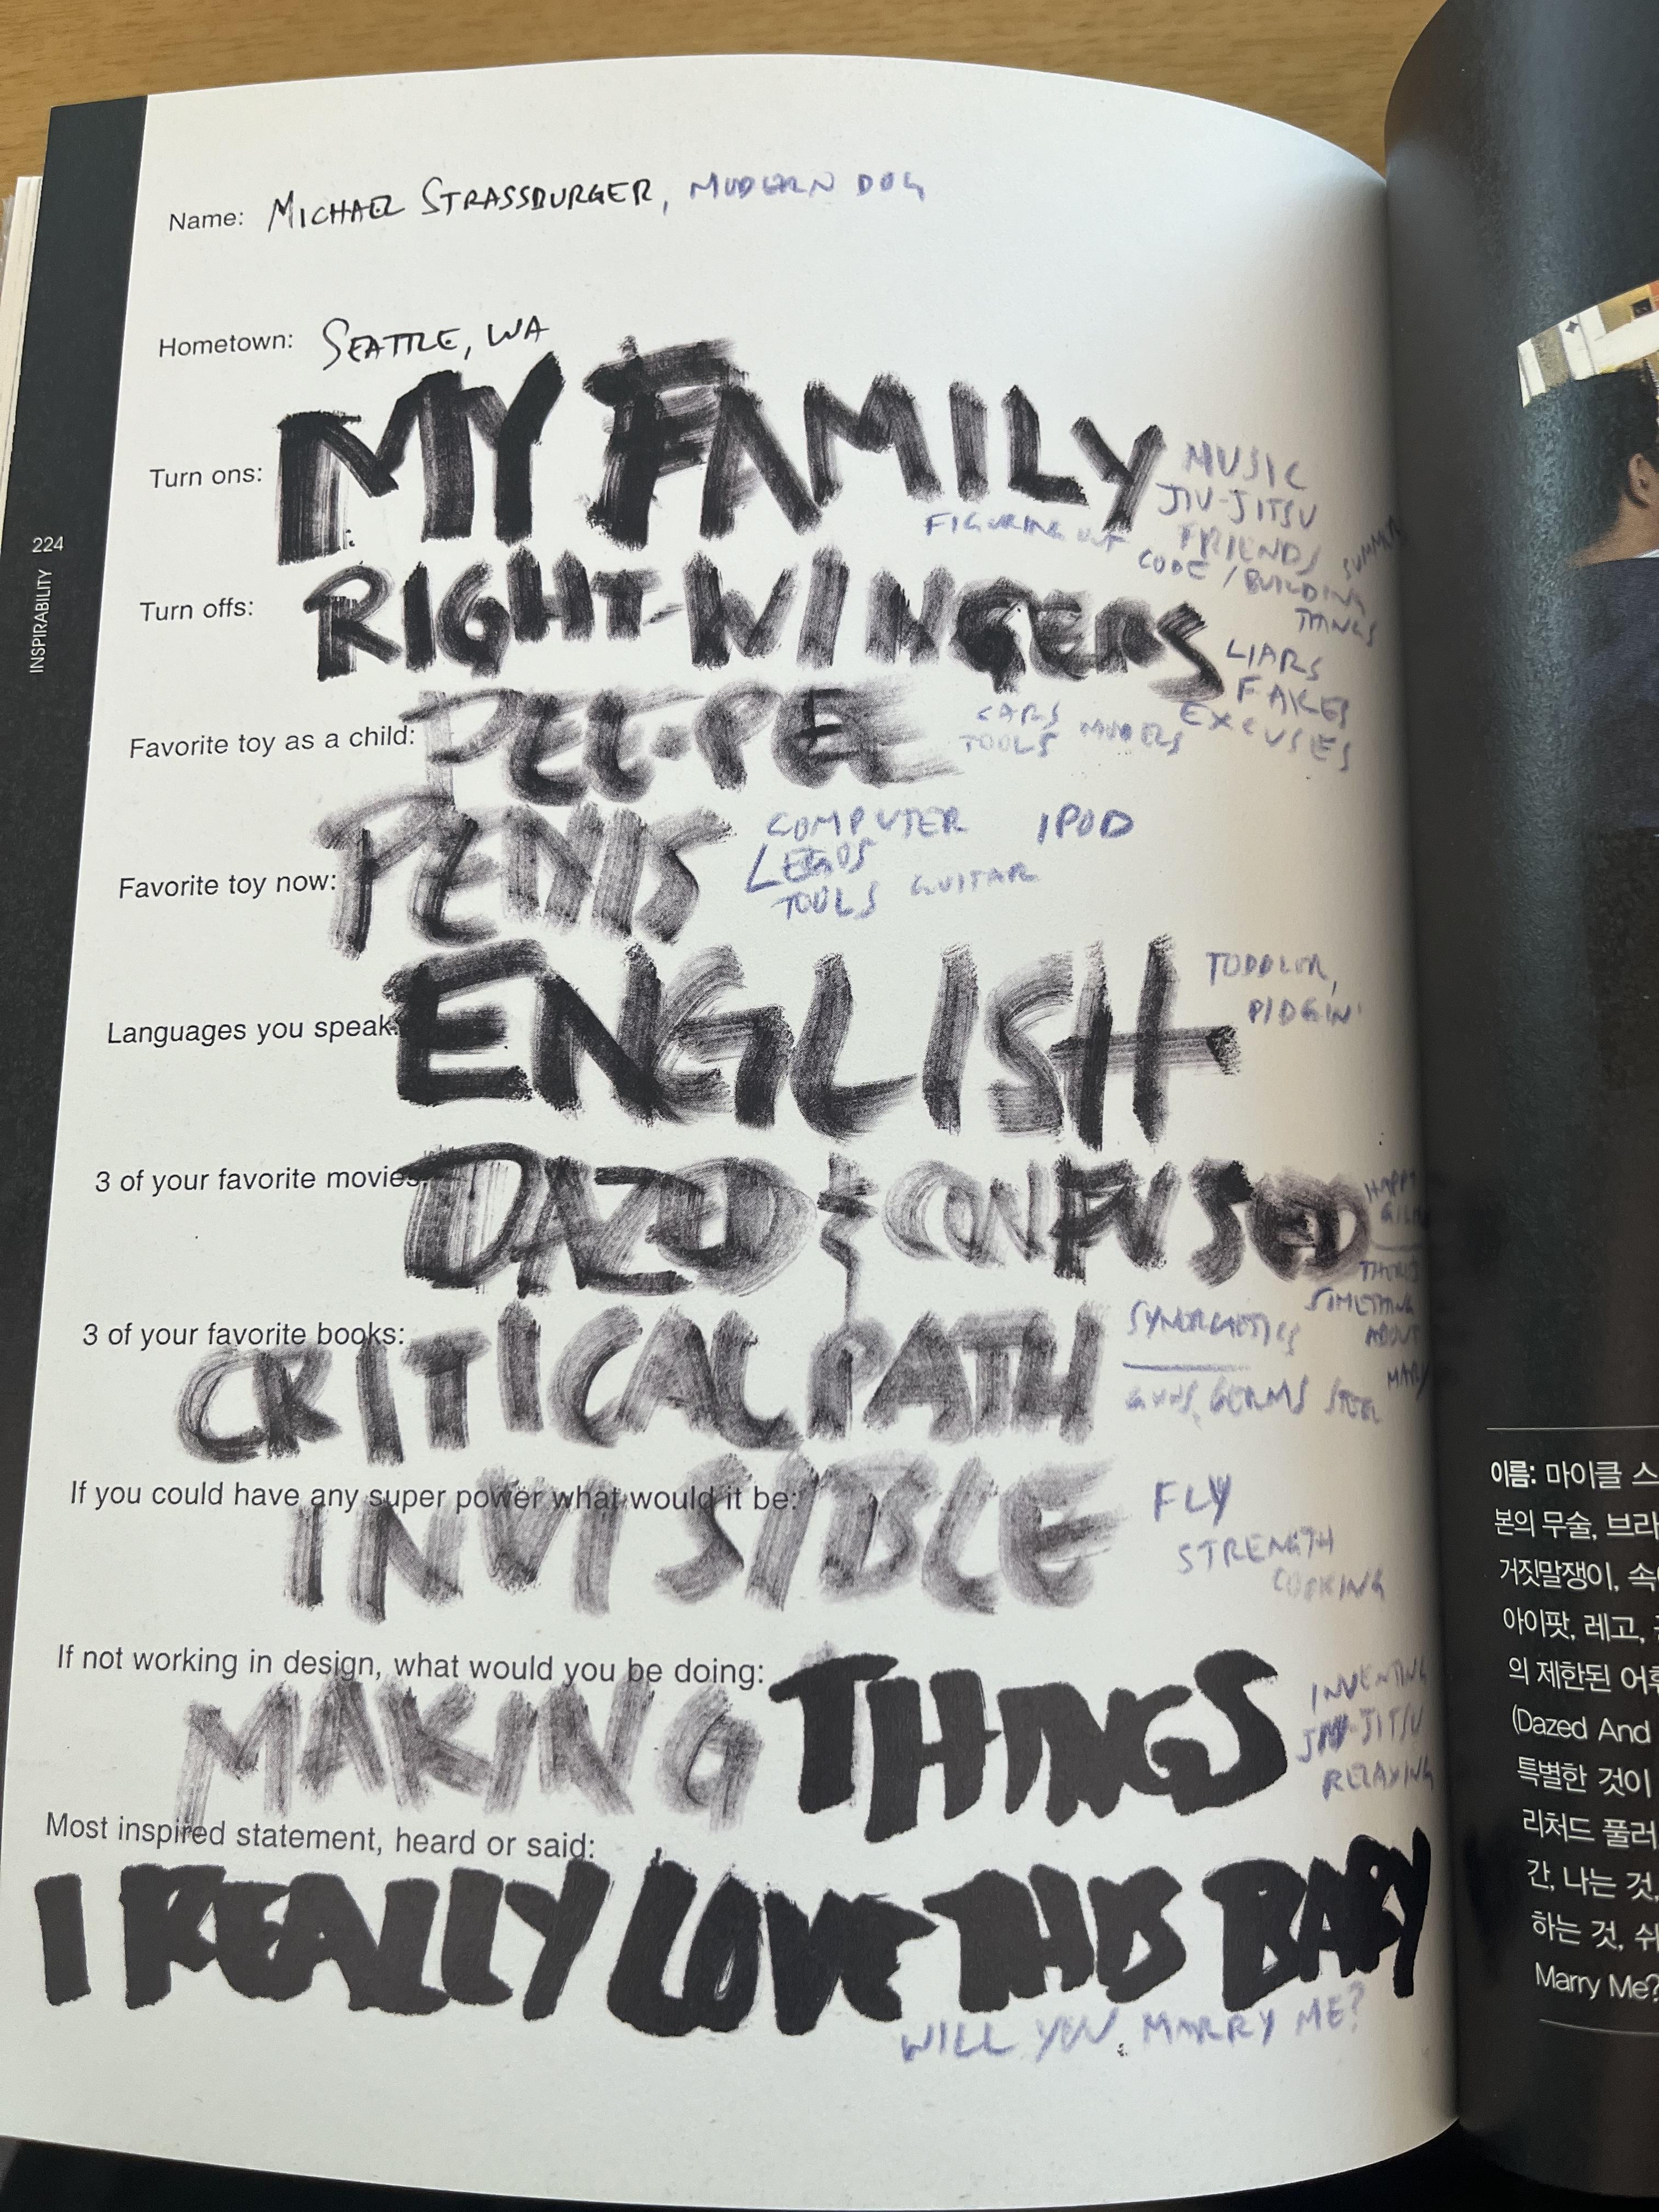 Name: MICHAEL STRASSBURGER, MODERN DOG
Hometown: SEATTLE, WA
Turn ons: MY FAMILY
MUSIC
JIU-JITSU
FRIENDS SUMMER
FIGURING OUT CODE / BUILDING
THINGS
Turn offs: RIGHT-WINGERS
LIARS
FAKES
EXCUSES
Favorite toy as a child: PEE-PEE
CARS
TOOLS MODELS
Favorite toy now: PENIS
COMPUTER IPOD
LEGOS
TOOLS GUITAR
Languages you speak: ENGLISH
TODDLER,
PIDGIN'
3 of your favorite movies: DAZED & CONFUSED
HAPPY
SOMETHING
ABOUT
MARY
3 of your favorite books:
CRITICAL PATH
SYNERGETICS
GUNS, GERMS STEEL
If you could have any super power what would it be:
INVISIBLE
FLY
STRENGTH
COOKING
If not working in design, what would you be doing:
MAKING THINGS
INVENTING
JIU-JITSU
RELAXING
Most inspired statement, heard or said:
I REALLY LOVE THIS BABY
WILL YOU MARRY ME?
224
INSPIRABILITY
이름: 마이클 스
본의 무술, 브라
거짓말쟁이, 속
아이팟, 레고,
의 제한된 어휘
(Dazed And
특별한 것이
리처드 풀러
간, 나는 것,
하는 것, 쉬
Marry Me?